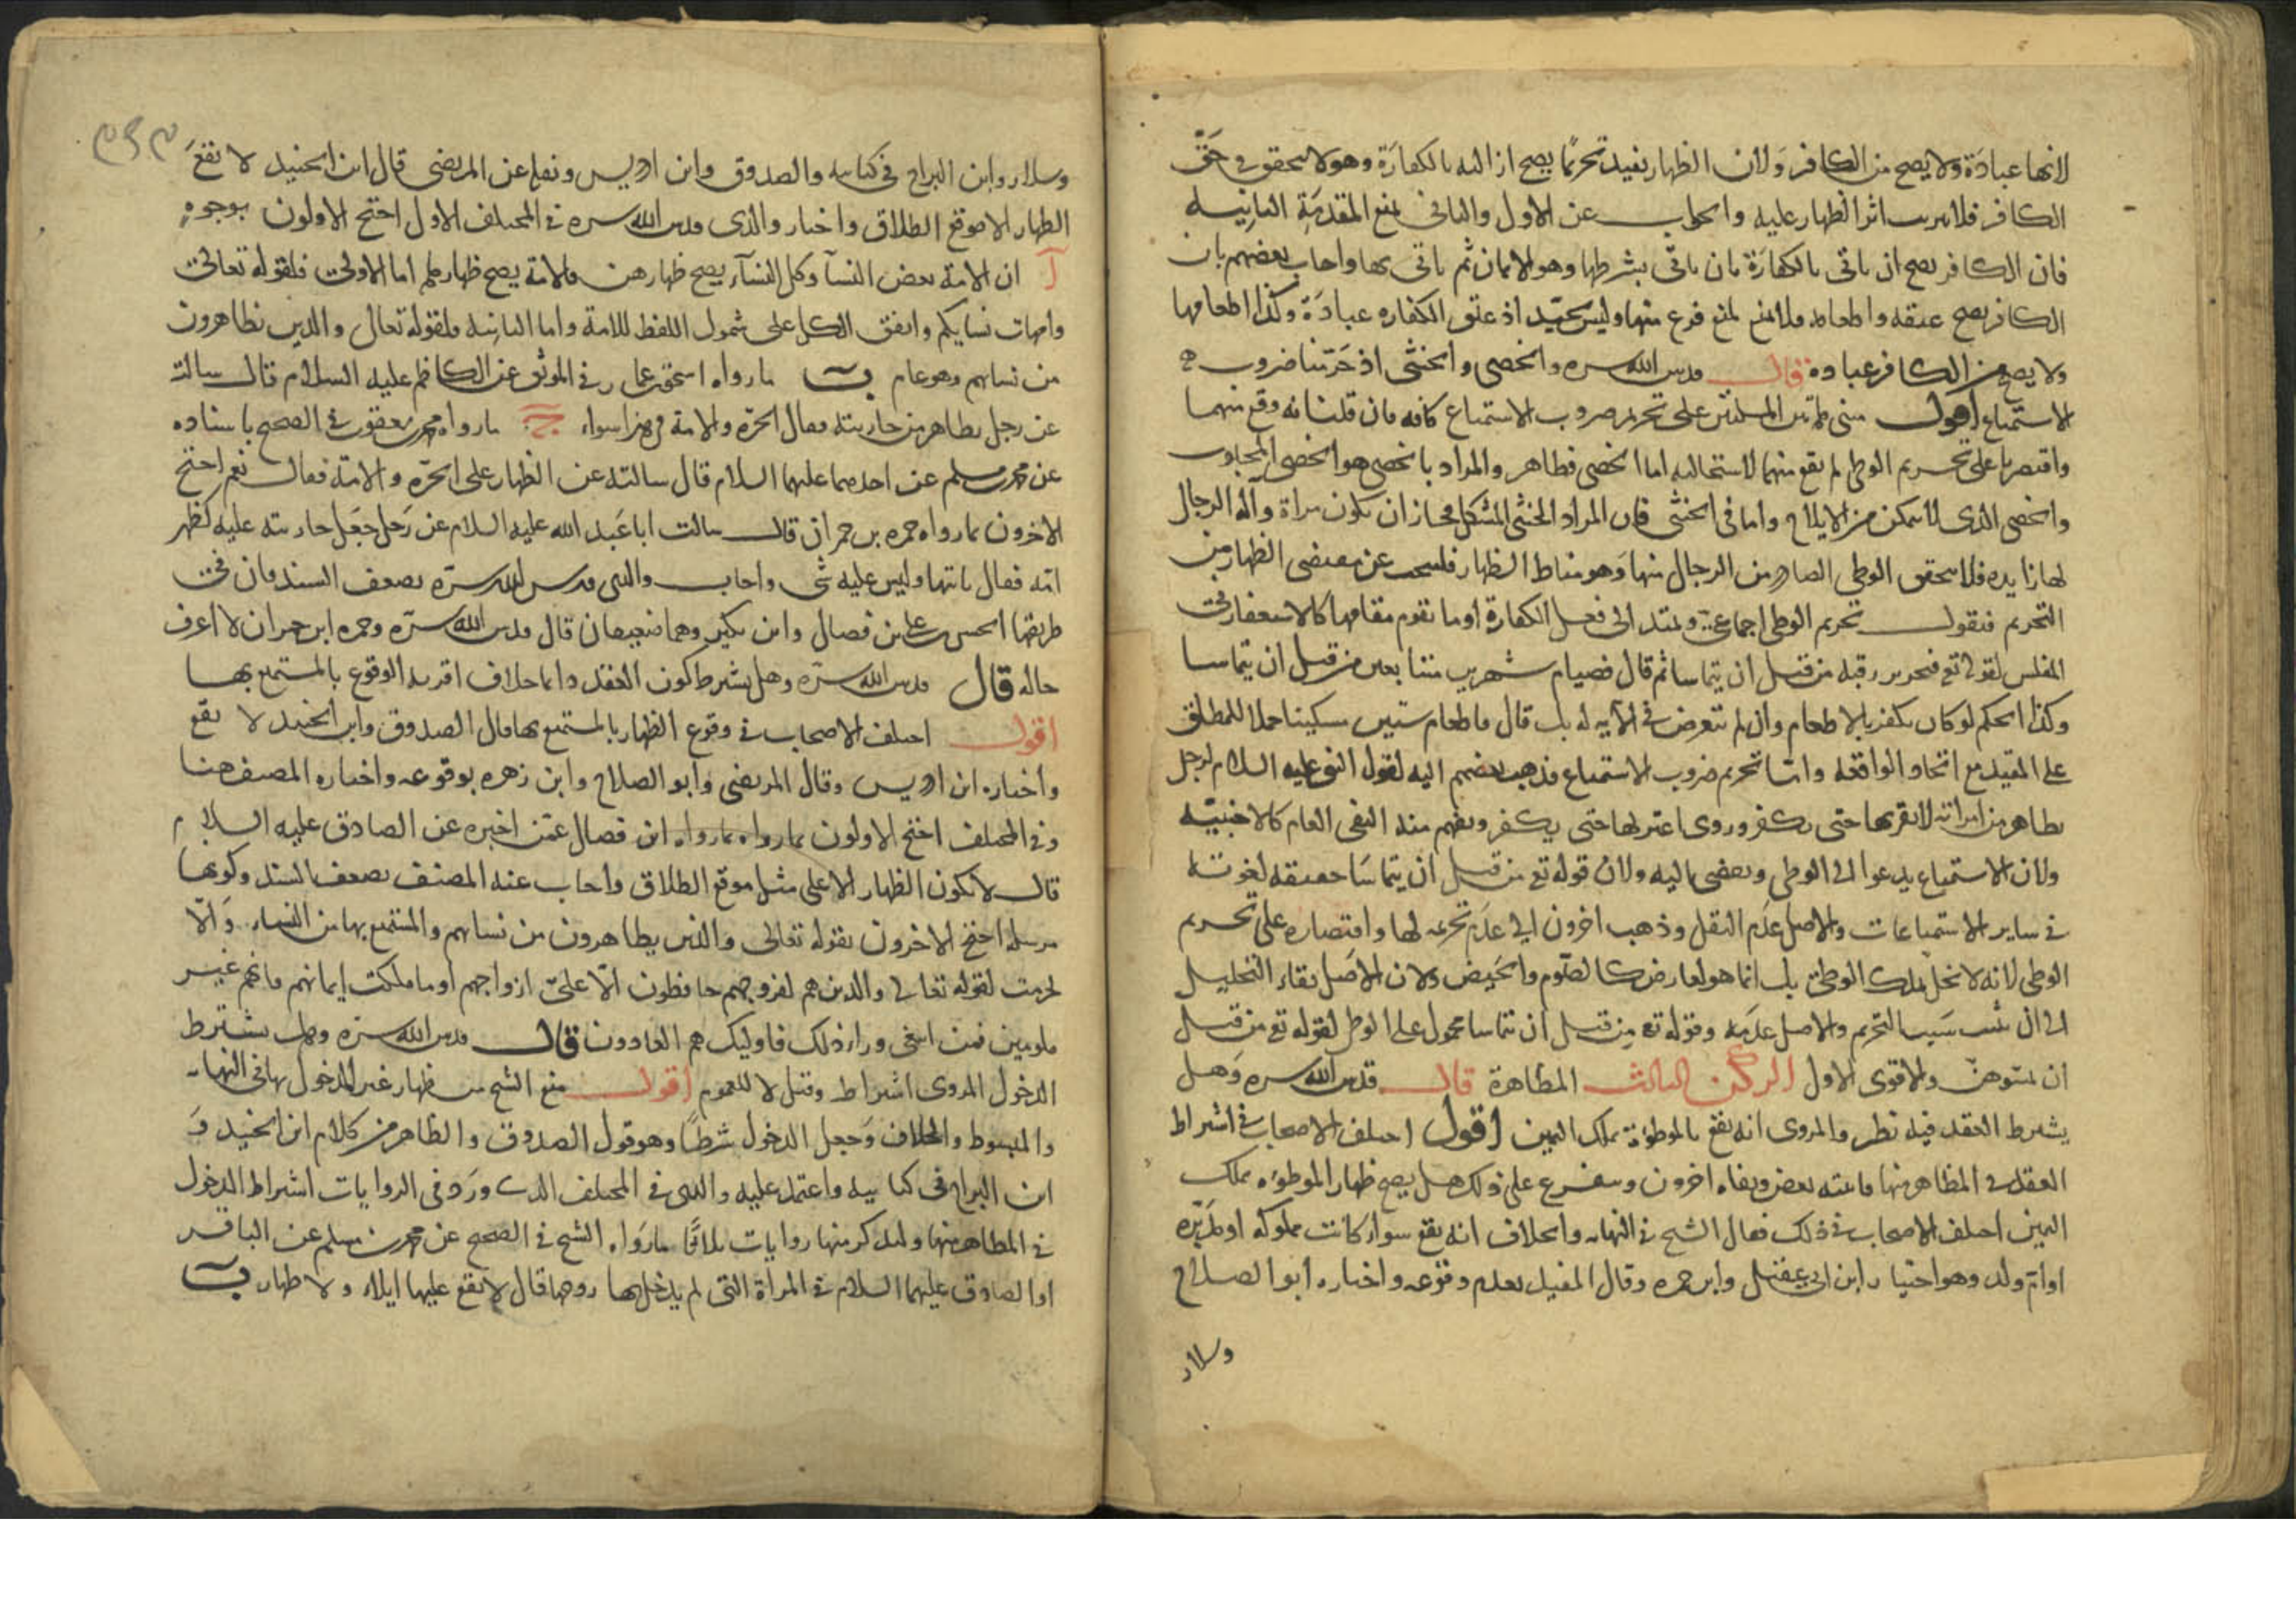 لانها عبادة ولا يصح من الكافر ولان الظهار يفيد تحريما يصح ازالته بالكفارة وهو لا يتحقق في حق
الكافر فلا يترتب اثر الظهار عليه والجواب عن الاول والثاني لمنع المقدمة الثانية
فان الكافر يصح ان ياتي بالكفارة بان ياتي بشرطها وهو الايمان ثم ياتي بها واجاب بعضهم بان
الكافر يصح عتقه واطعامه فلا لمنع فرع منها وليس بجيد اذ عتق الكفاره عبادة وكذا اطعامها
ولا يصح من الكافر عبادة قال قدس الله سره والخصي والخنثى اذ حرمنا ضروب
الاستمتاع اقول مبنى المسئلتين على تحريم ضروب الاستمتاع كافه فان قلنا به وقع منهما
واقتصرنا على تحريم الوطي لم يقع منهما لاستحالته اما الخصي فظاهر والمراد بالخصي هو الخصي المجبوب
والخصي الذي لا يتمكن من الايلاج واما في الخنثى فان المراد الخنثى المشكل فجاز ان تكون مراة وآلة الرجال
لها زايده فلا يتحقق الوطي الصادر من الرجال منها وهو مناط الظهار فلنبحث عن مقتضى الظهار من
التحريم فنقول تحريم الوطي اجماعي ويمتد الى فعل الكفارة او ما يقوم مقامها كالاستغفار في
المفلس لقوله تع فتحرير رقبه من قبل ان يتماسا ثم قال فصيام شهرين متتابعين من قبل ان يتماسا
وكذا الحكم لو كان يكفر بالاطعام وان لم تعرض في الآيه له بل قال فاطعام ستين مسكينا حملا للمطلق
على المقيد مع اتحاد الواقعة واما تحريم ضروب الاستمتاع فذهب بعضهم اليه لقول النبي عليه السلام لرجل
يظاهر من امراته لا تقربها حتى تكفر وروى اعتزلها حتى يكفر ويفهم منه النفي العام كالاجنبيه
ولان الاستمتاع يدعوا الى الوطي ويفضي اليه ولان قوله تع من قبل ان يتماسا حقيقه لغويه
في ساير الاستمتاعات والاصل عدم النقل وذهب اخرون الى عدم تحريمه لها واقتصاره على تحريم
الوطي لانه لا يخل بملك الوطي بل انما هو لعارض كالصوم والحيض ولان الاصل بقاء التحليل
الى ان يثبت سبب التحريم والاصل عدمه وقوله تع من قبل ان يتماسا محمول على الوطي لقوله تع من قبل
ان تمسوهن والاقوى الاول الركن الثالث المظاهرة قال قدس الله سره وهل
يشترط العقد فيه نظر والمروى انه يقع بالموطوءة بملك اليمين اقول اختلف الاصحاب في اشتراط
العقد في المظاهر منها فاثبته بعض ونفاه اخرون ويتفرع على ذلك هل يصح ظهار الموطوءه بملك
اليمين اختلف الاصحاب في ذلك فقال الشيخ في النهايه والخلاف انه يقع سواء كانت مملوكه او مدبره
او ام ولد وهو اختيار ابن ابي عقيل وابن حمزه وقال المفيد بعدم وقوعه واختاره ابو الصلاح
وسلار
٣٤٣
وسلار وابن البراج في كتابيه والصدوق وابن ادريس ونقله عن المرتضى قال ابن الجنيد لا يقع
الظهار الا موقع الطلاق واختار والدي قدس الله سره في المختلف الاول احتج الاولون بوجوه
آ ان الامة بعض النسآ وكل النسآء يصح ظهارهن فالامة يصح ظهارها اما الاولى فلقوله تعالى
وامهات نسايكم واتفق الكل على شمول اللفظ للامة واما الثانيه فلقوله تعالى والذين يظاهرون
من نسائهم وهو عام ب ما رواه اسحق بن عمار في الموثق عن الكاظم عليه السلام قال سالت
عن رجل يظاهر من جاريته فقال الحرة والامة في هذا سواء ج ما رواه محمد بن يعقوب في الصحيح باسناده
عن محمد بن مسلم عن احدهما عليهما السلام قال سالته عن الظهار على الحرة والامة فقال نعم احتج
الاخرون بما رواه حمزه بن حمران قال سالت ابا عبد الله عليه السلام عن رجل جعل جاريته عليه كظهر
امه فقال ياتيها وليس عليه شى واجاب والدي قدس الله سره بضعف السند فان في
طريقها الحسن بن علي بن فضال وابن بكير وهما ضعيفان قال قدس الله سره وحمزه ابن حمران لا اعرف
حاله قال قدس الله سره وهل يشترط كون العقد دائما خلاف اقربه الوقوع بالمستمتع بها
اقول اختلف الاصحاب في وقوع الظهار بالمستمتع بها فقال الصدوق وابن الجنيد لا يقع
واختاره ابن ادريس وقال المرتضى وابو الصلاح وابن زهره بوقوعه واختاره المصنف هنا
وفي المختلف احتج الاولون بما رواه بما رواه ابن فضال عمن اخبره عن الصادق عليه السلام
قال لا يكون الظهار الا على مثل موقع الطلاق واجاب عنه المصنف بضعف السند وكونها
مرسله احتج الاخرون بقوله تعالى والذين يظاهرون من نسائهم والمتمتع بها من النساء والا
لحرمت لقوله تعالى والذين هم لفروجهم حافظون الا على ازواجهم او ما ملكت ايمانهم فانهم غير
ملومين فمن ابتغى وراء ذلك فاوليك هم العادون قال قدس الله سره وهل يشترط
الدخول المروى اشتراط وقيل لا للعموم اقول منع الشيخ من ظهار غير المدخول بها في النهايه
والمبسوط والخلاف وجعل الدخول شرطا وهو قول الصدوق والظاهر من كلام ابن الجنيد و
ابن البراج في كتابيه واعتمد عليه والدي في المختلف الذي ورد في الروايات اشتراط الدخول
في المظاهر منها ولنذكر منها روايات ثلاثا ما رواه الشيخ في الصحيح عن محمد بن مسلم عن الباقر
او الصادق عليهما السلام في المراة التي لم يدخل بها زوجها قال لا يقع عليها ايلاء ولا ظهار ب